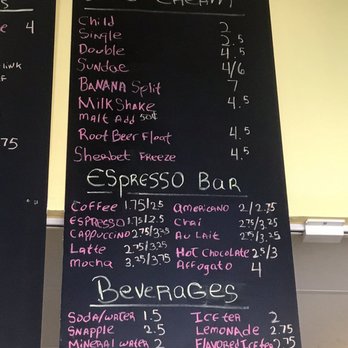 CREAM
Child 2
Single 2.5
Double 4.5
Sundae 4/6
BANANA Split 7
Milk Shake 4.5
malt Add 50¢
Root Beer Float 4.5
Sherbet Freeze 4.5
ESPRESSO Bar
Coffee 1.75/2.5
ESPRESSO 1.75/2.5
CAPPUCCINO 2.75/3.25
Latte 2.75/3.25
mocha 3.25/3.75
Americano 2/2.75
Chai 2.75/3.25
Au Lait 2.5/3.25
Hot Chocolate 2.5/3
Affogato 4
Beverages
Soda/water 1.5
Snapple 2.5
Mineral water 2
ICE Tea 2
Lemonade 2.75
Flavored Ice Tea 2.75
S
4
.75